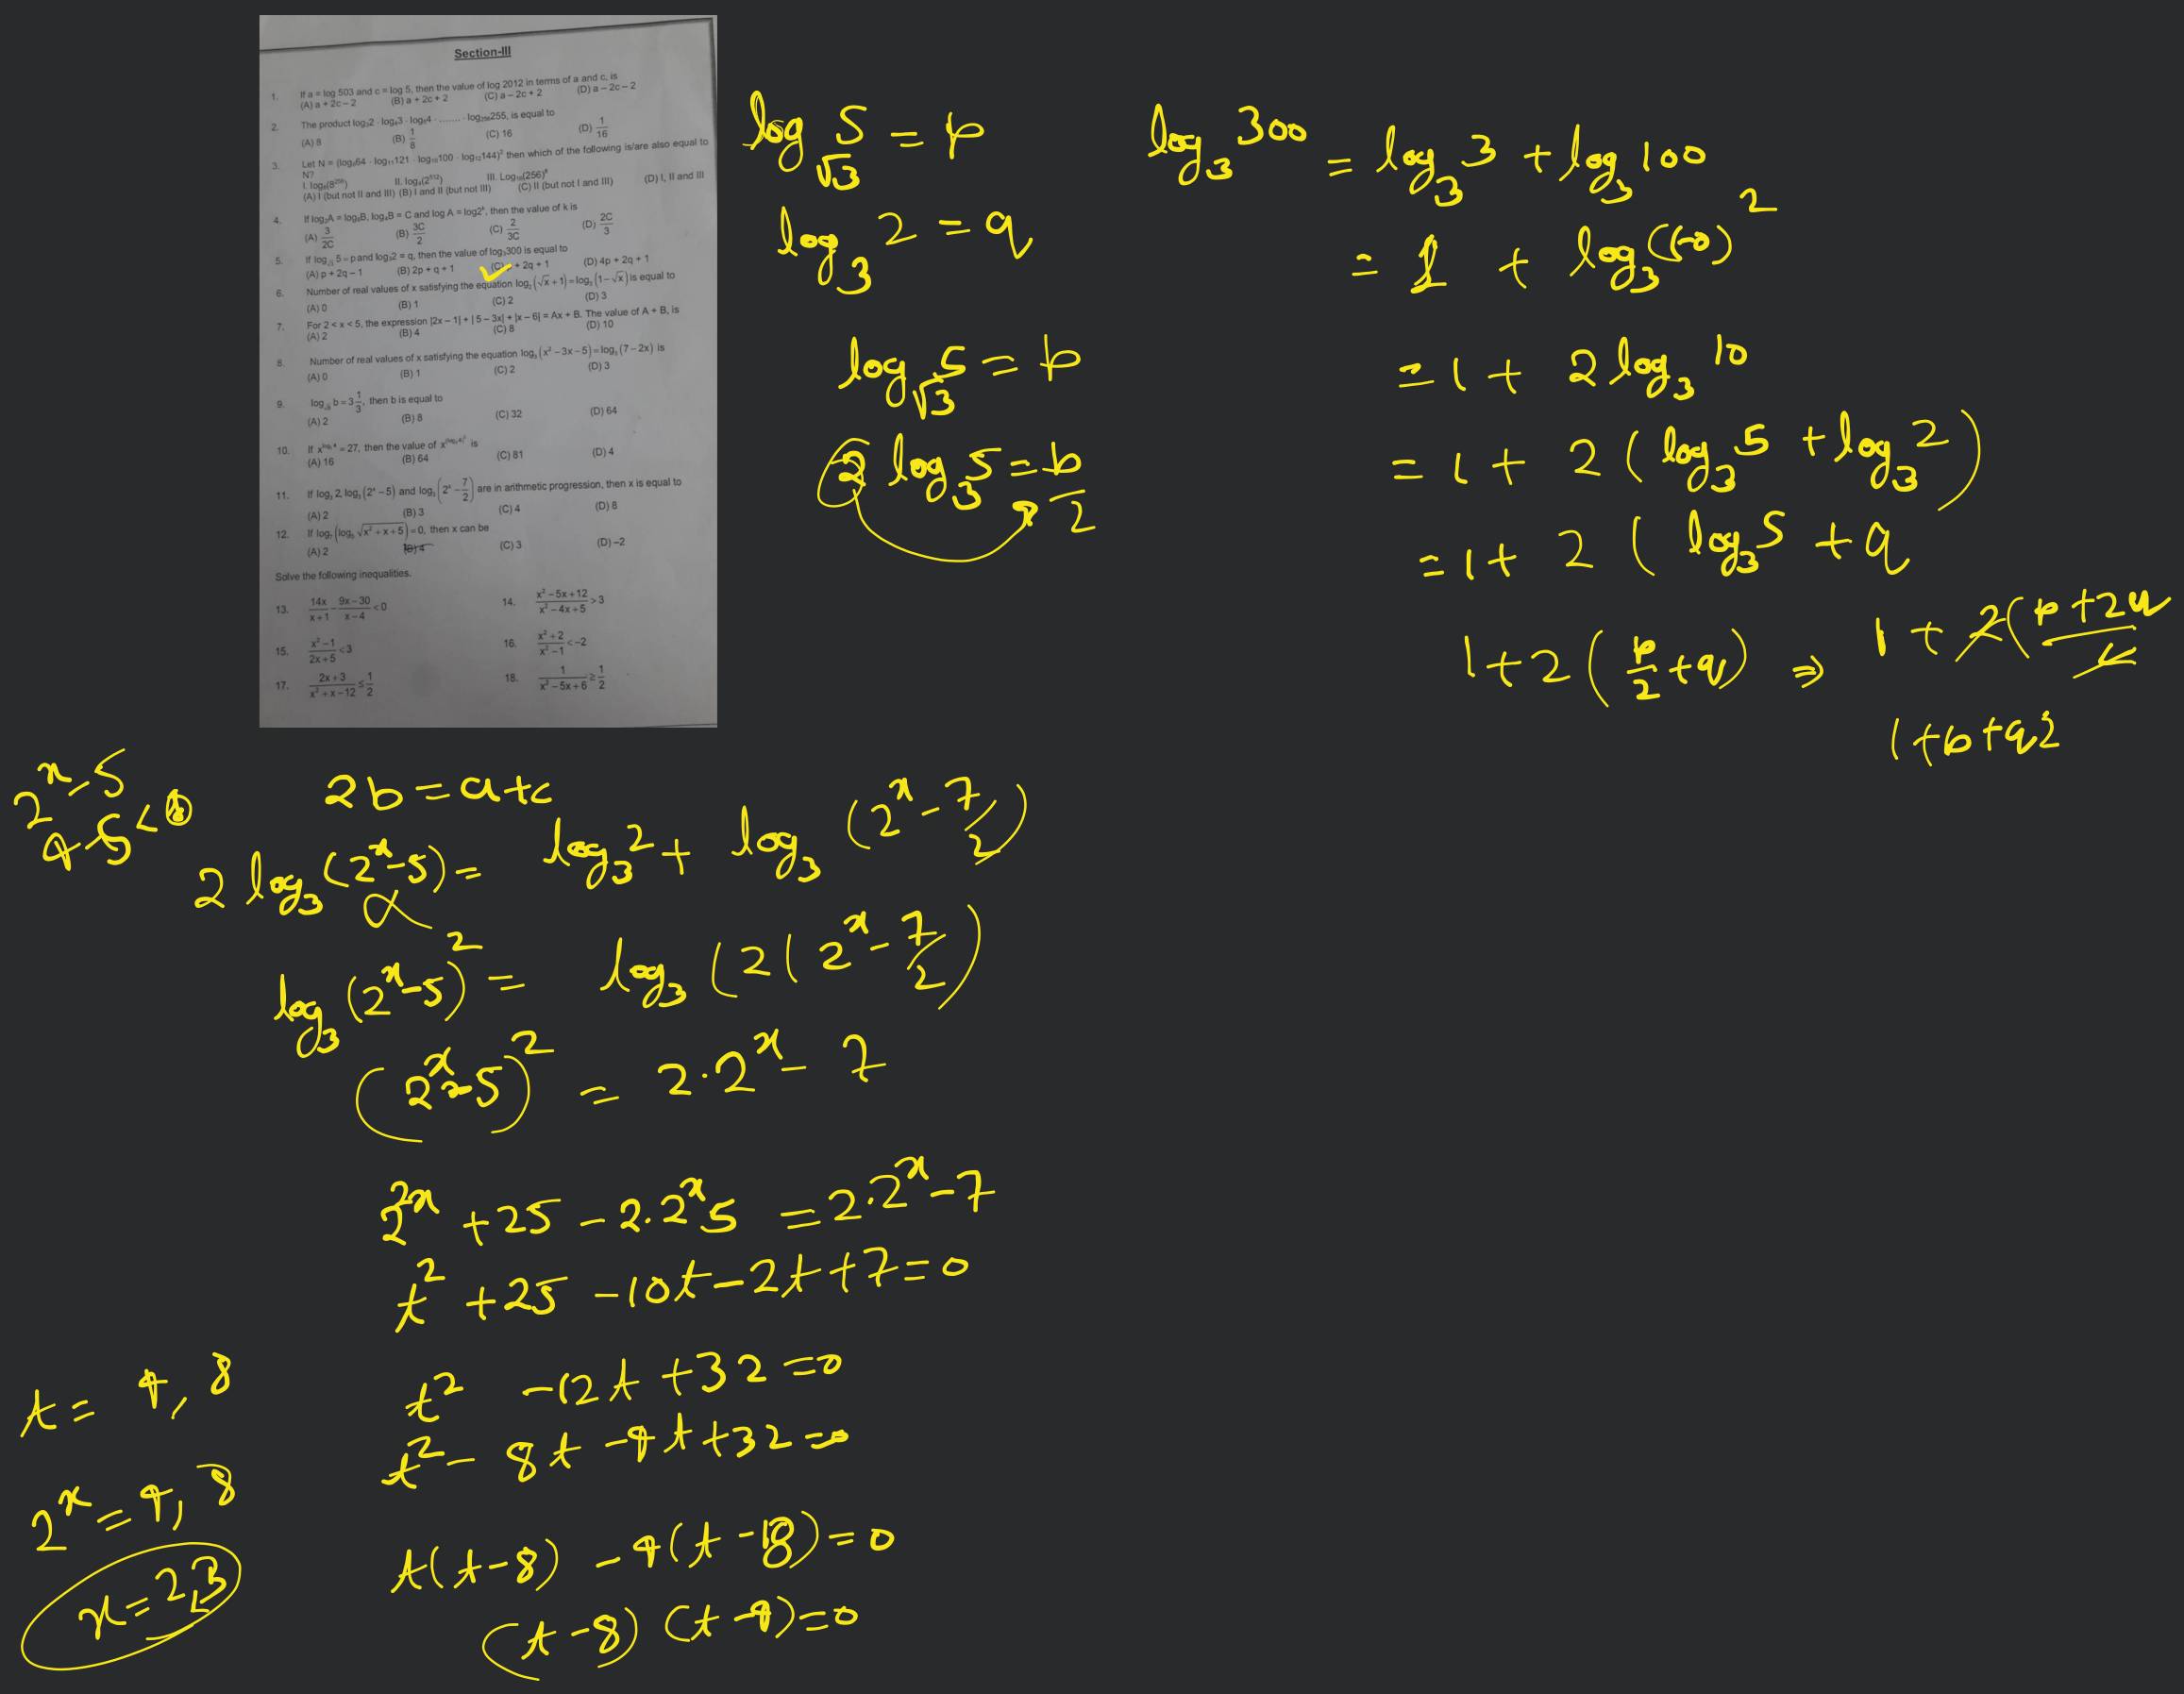 Section-III
1. If a = log 503 and c = log 5, then the value of log 2012 in terms of a and c, is
(A) a + 2c – 2 (B) a + 2c + 2 (C) a – 2c + 2 (D) a – 2c – 2
2. The product log₃2 · log₄3 · log₅4 · ....... · log₂₅₆255, is equal to
(A) 8 (B) 1/8 (C) 16 (D) 1/16
3. Let N = (log₄64 · log₁₁121 · log₁₀100 · log₁₂144)² then which of the following is/are also equal to
N?
(A) I (but not II and III) (B) I and II (but not III) (C) II (but not I and III) (D) I, II and III
4. If log₂A = log₈B, log₄B = C and log A = log2ᵏ, then the value of k is
(A) 3/2C (B) 3C/2 (C) 2/3C (D) 2C/3
5. If log√₃ 5 = p and log₃2 = q, then the value of log₃300 is equal to
(A) p + 2q – 1 (B) 2p + q + 1 (C) p + 2q + 1 (D) 4p + 2q + 1
6. Number of real values of x satisfying the equation log₂(√x + 1) = log₂(1 – √x) is equal to
(A) 0 (B) 1 (C) 2 (D) 3
7. For 2 < x < 5, the expression |2x – 1| + |5 – 3x| + |x – 6| = Ax + B. The value of A + B, is
(A) 2 (B) 4 (C) 8 (D) 10
8. Number of real values of x satisfying the equation log₅(x² – 3x – 5) = log₅(7 – 2x) is
(A) 0 (B) 1 (C) 2 (D) 3
9. b = 3 1/3, then b is equal to
(A) 2 (B) 8 (C) 32 (D) 64
10. = 27, then the value of is
(A) 16 (B) 64 (C) 81 (D) 4
11. If log₃ 2, log₃(2ˣ – 5) and log₃(2ˣ – 7/2) are in arithmetic progression, then x is equal to
(A) 2 (B) 3 (C) 4 (D) 8
12. If log₇(log₅ √(x² + x + 5)) = 0, then x can be
(A) 2 (B) 4 (C) 3 (D) –2
Solve the following inequalities.
13. 14x/(x+1) – (9x–30)/(x–4) < 0 14. (x² – 5x + 12)/(x² – 4x + 5) > 3
15. (x² – 1)/(2x + 5) < 3 16. (x² + 2)/(x² – 1) < –2
17. (2x + 3)/(x² + x – 12) ≤ 1/2 18. 1/(x² – 5x + 6) ≥ 1/2
log√3 5 = p
log₃ 2 = q
log√3 5 = p
2 log₃ 5 = p/2
log₃ 300 = log₃ 3 + log₃ 100
= 1 + log₃ (10)²
= 1 + 2 log₃ 10
= 1 + 2 (log₃ 5 + log₃ 2)
= 1 + 2 ( log₃ 5 + q
1 + 2 (p/2 + q) ⇒ 1 + 2(p + 2q/2
1 + p + q2
2ˣ – 5
4 – 5 < 0
2b = a + c
2 log₃ (2ˣ – 5) = log₃ 2 + log₃ (2ˣ – 7/2)
log₃ (2ˣ – 5)² = log₃ (2(2ˣ – 7/2)
(2ˣ – 5)² = 2·2ˣ – 7
2²ˣ + 25 – 2·2ˣ5 = 2·2ˣ – 7
t² + 25 – 10t – 2t + 7 = 0
t² – 12t + 32 = 0
t² – 8t – 4t + 32 = 0
t(t – 8) – 4(t – 8) = 0
(t – 8) (t – 4) = 0
t = 4, 8
2ˣ = 4, 8
x = 2, 3